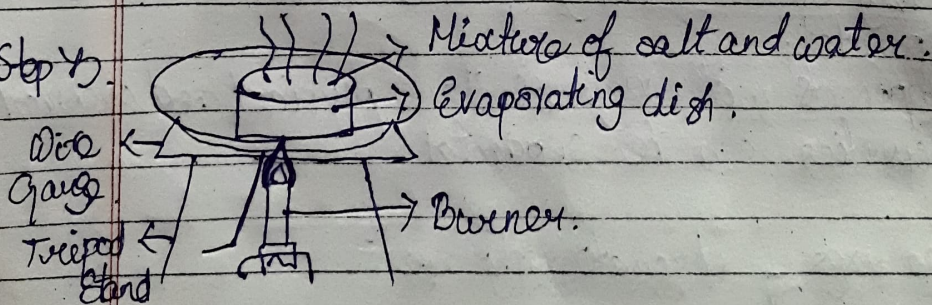 Mixture of salt and water.
Step
Evaporating dish.
Wire
Gauge
Burner.
Tripod
Stand